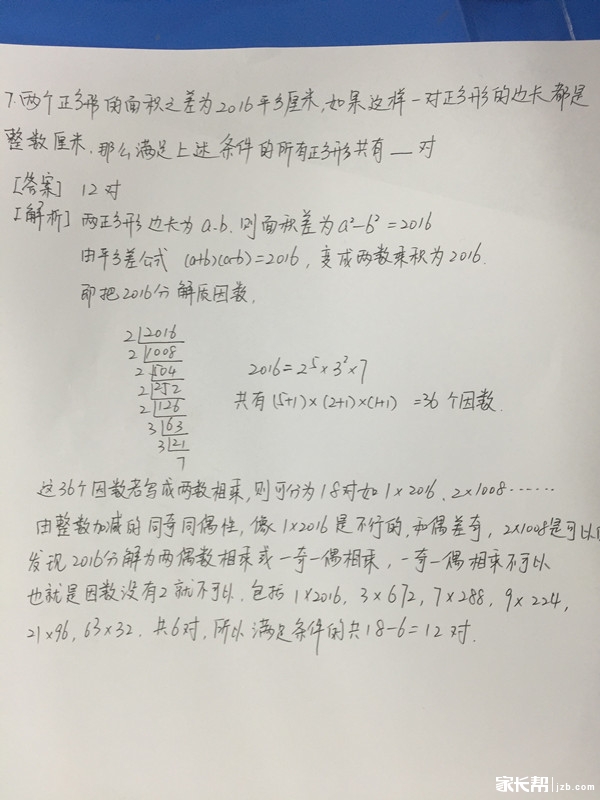 7.两个正方形的面积之差为2016平方厘米,如果这样一对正方形的边长都是
整数厘米.那么满足上述条件的所有正方形共有__对
[答案] 12对
[解析] 两正方形边长为a.b.则面积差为a²-b²=2016
由平方差公式 (a+b)(a-b)=2016,变成两数乘积为2016.
即把2016分解质因数,
2 2016
2 1008
2 504
2 252
2 126
3 63
3 21
7
2016=2⁵×3²×7
共有(5+1)×(2+1)×(1+1) =36个因数.
这36个因数若写成两数相乘,则可分为18对如1×2016、2×1008······
由整数加减的同奇同偶性,像1×2016是不行的,和偶差奇,2×1008是可以
发现2016分解为两偶数相乘或一奇一偶相乘,一奇一偶相乘不可以
也就是因数没有2就不可以.包括1×2016,3×672,7×288,9×224,
21×96,63×32.共6对,所以满足条件的共18-6=12对.
家长帮 jzb.com